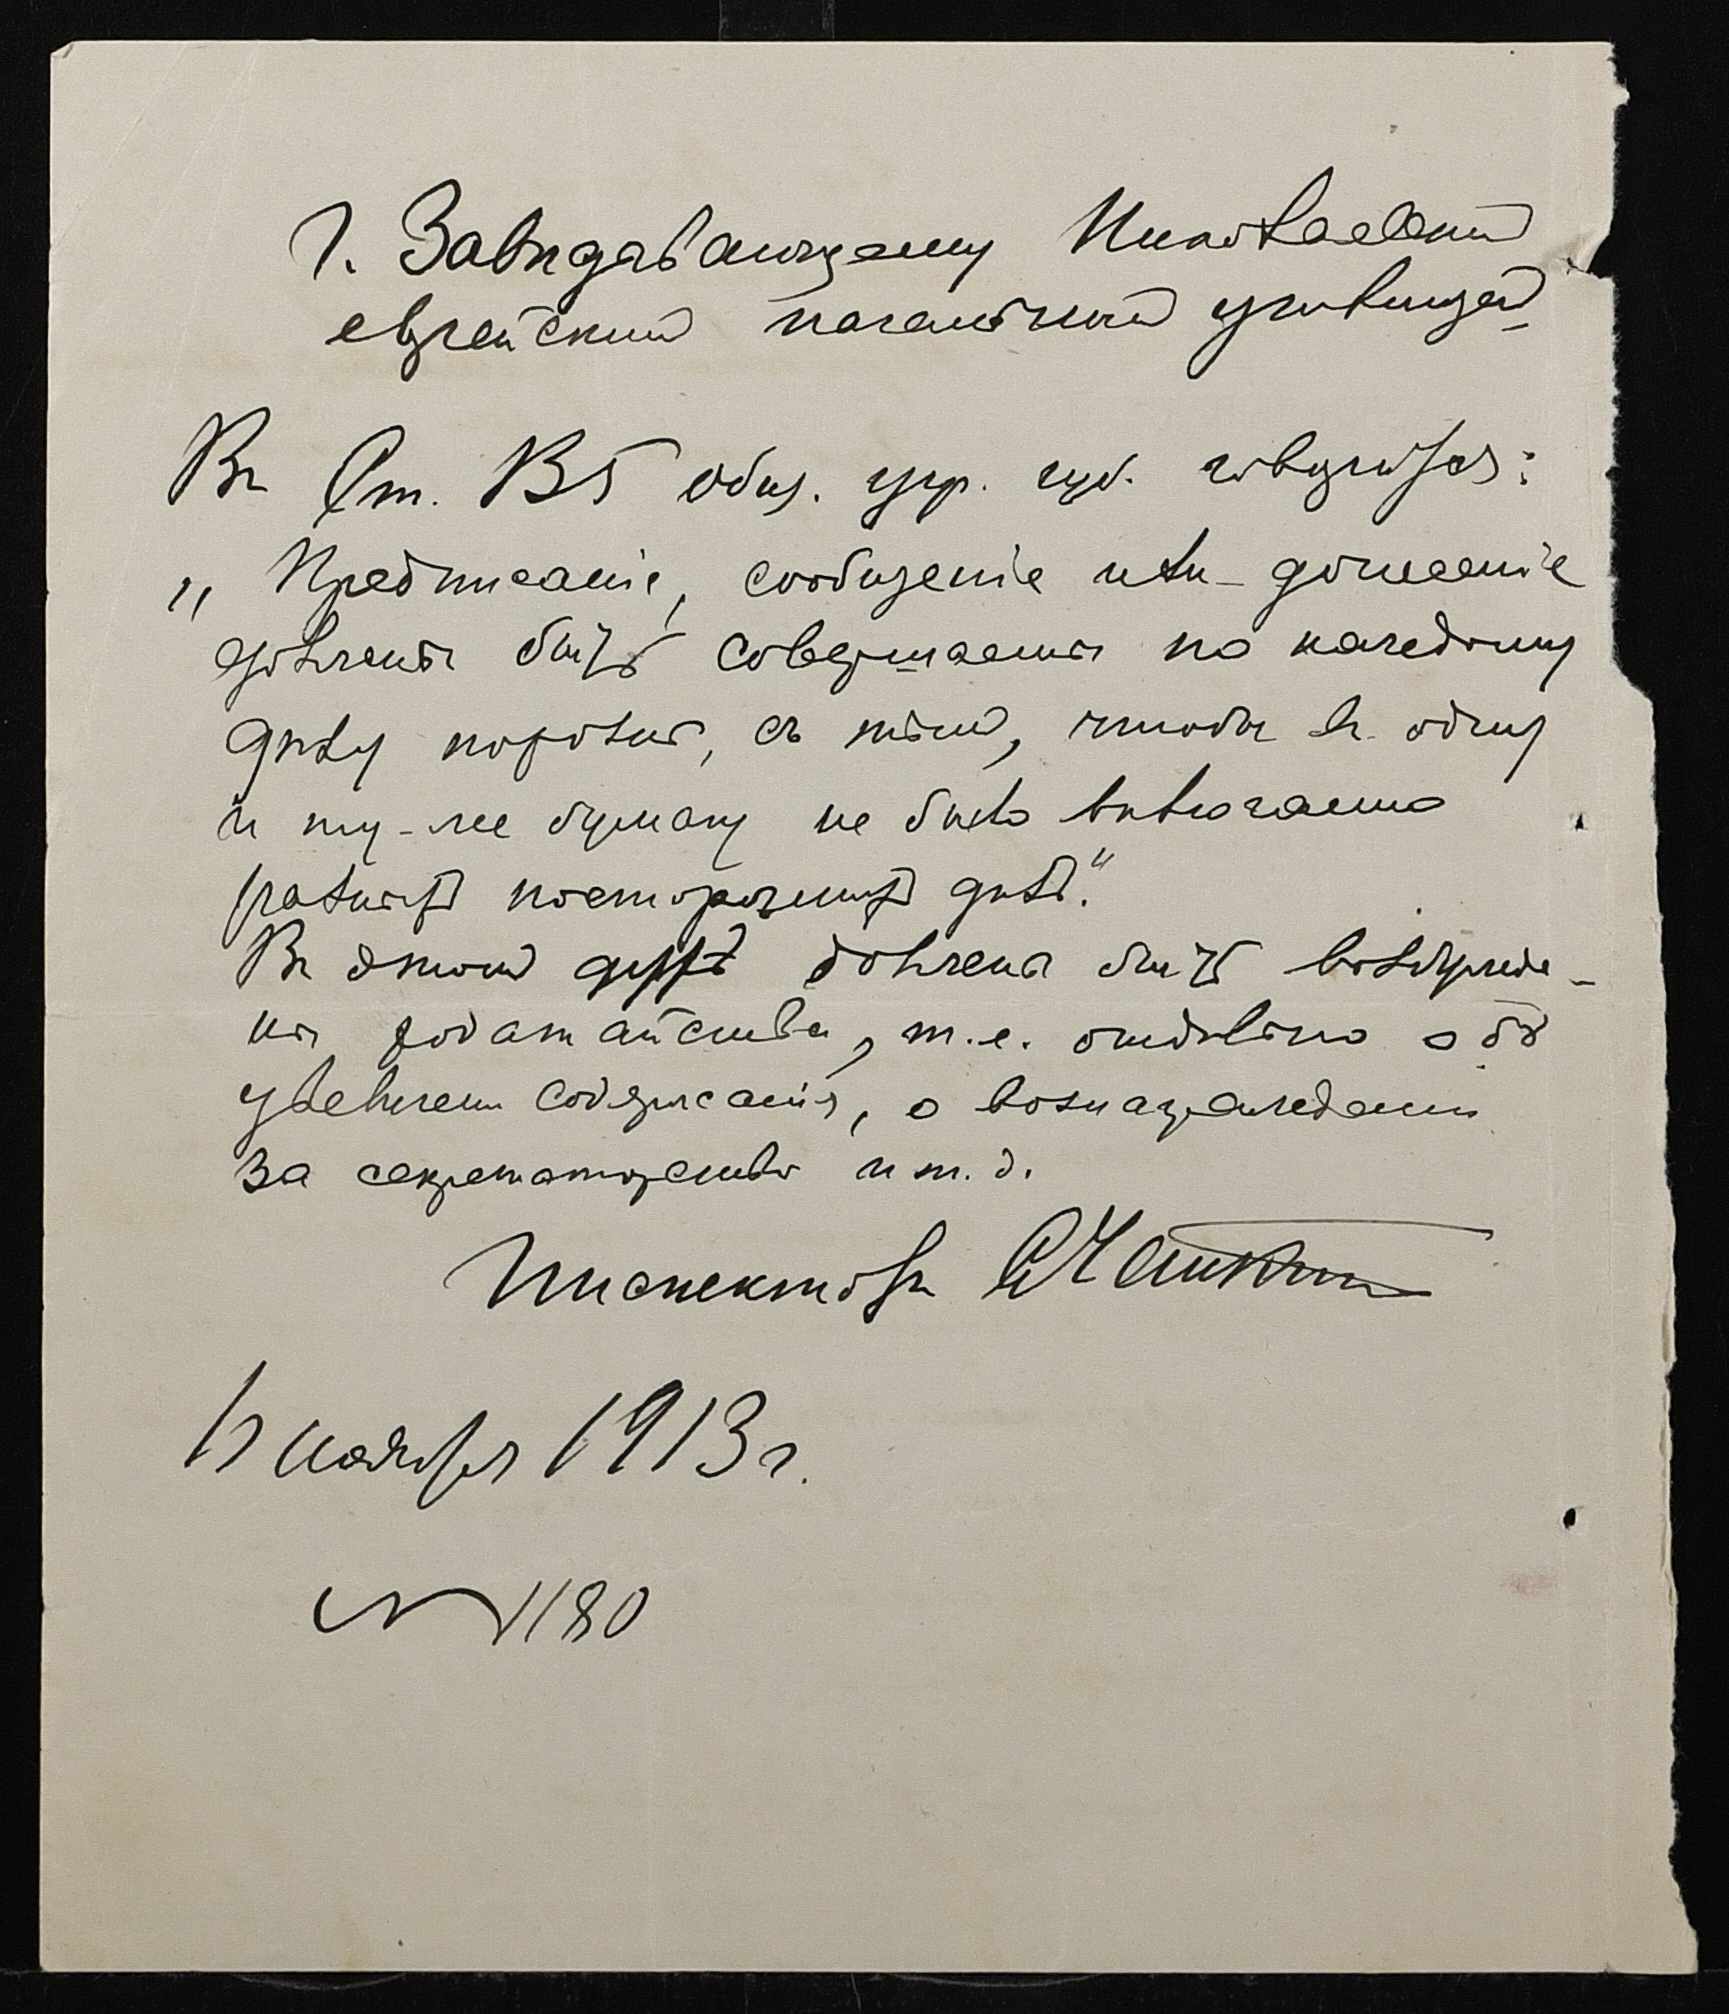 Г. Завѣдывающему Николаевскимъ
еврейскимъ начальнымъ училищемъ
Въ Ст. 85 общ. учр. губ. говорится:
„Предписаніе, сообщеніе или донесеніе
должны быть совершаемы по каждому
дѣлу порознь, съ тѣмъ, чтобы въ одну
и ту-же бумагу не было включаемо
разныхъ постороннихъ дѣлъ."
Въ этомъ духѣ должны быть возбуждае-
мы ходатайства, т.е. отдѣльно объ
увеличеніи содержанія, о вознагражденіи
за секретарство и т. д.
Инспекторъ
ноября 1913 г.
№ 1180